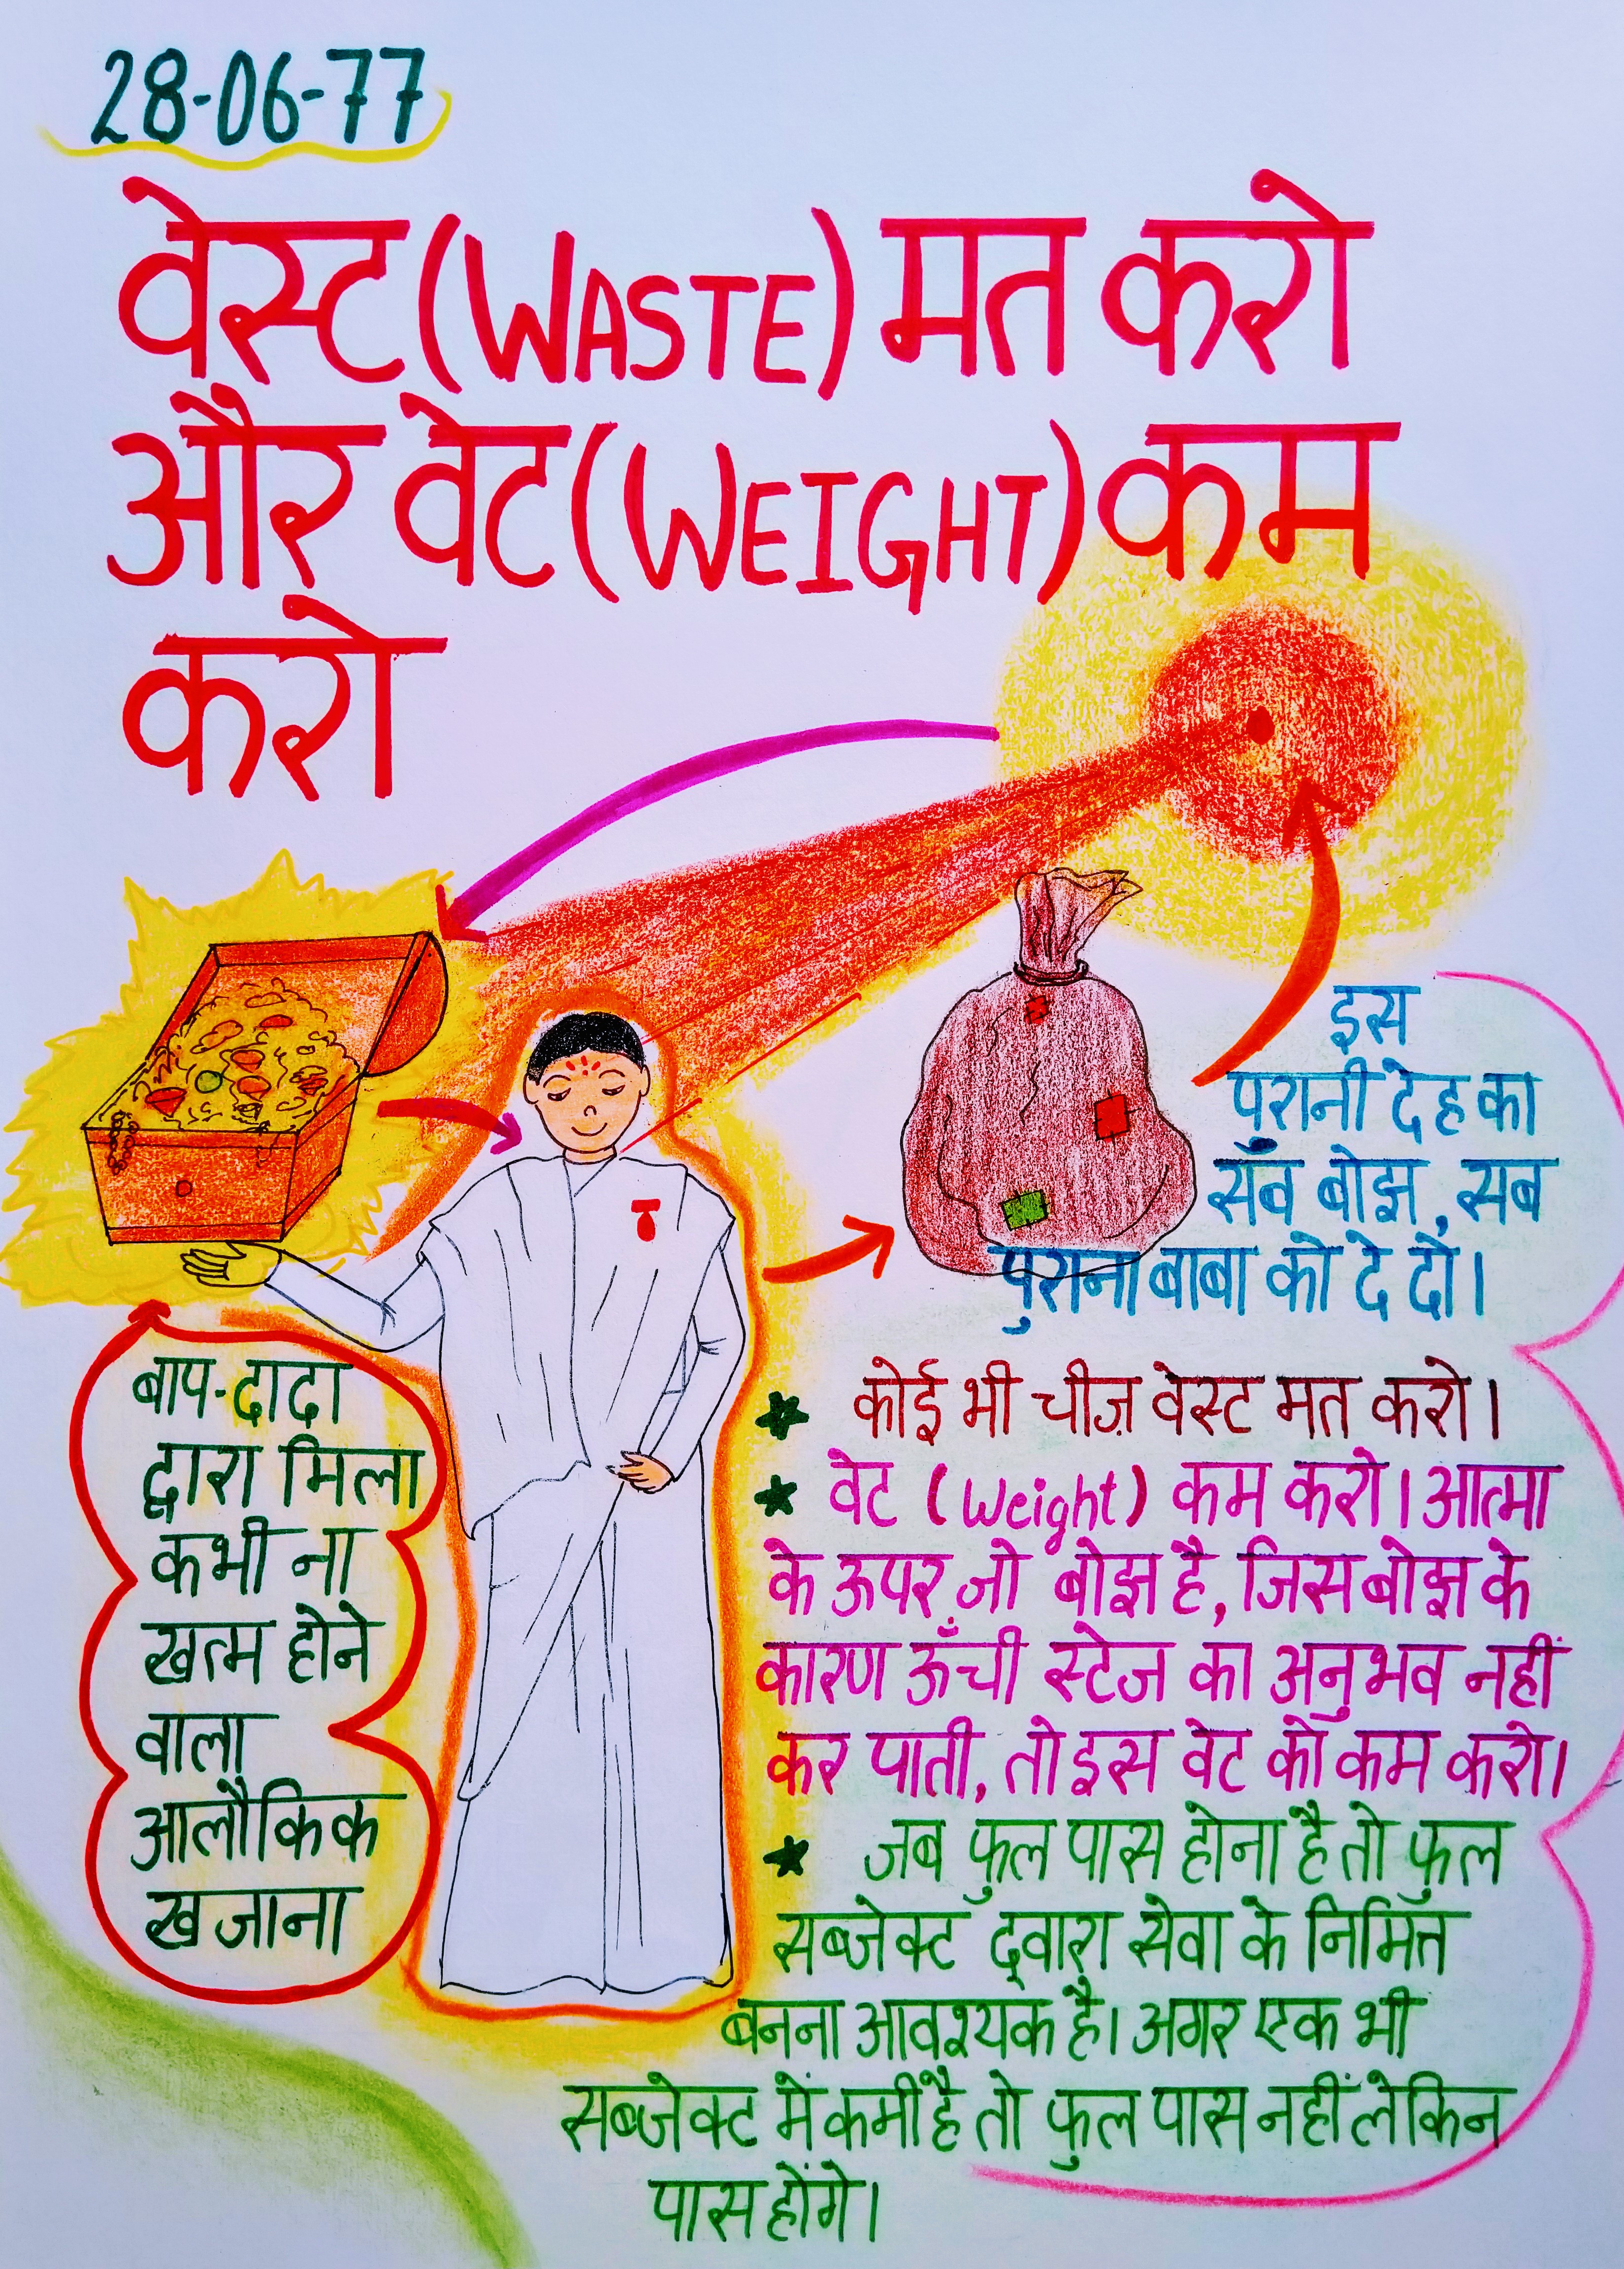 28-06-77
वेस्ट (WASTE) मत करो
और वेट (WEIGHT) कम
करो
इस
पुरानी देह का
सब बोझ, सब
पुराना बाबा को दे दो।
बाप-दादा
द्वारा मिला
कभी ना
खत्म होने
वाला
आलौकिक
खजाना
★ कोई भी चीज़ वेस्ट मत करो।
★ वेट (Weight) कम करो। आत्मा
के ऊपर जो बोझ है, जिस बोझ के
कारण ऊँची स्टेज का अनुभव नहीं
कर पाती, तो इस वेट को कम करो।
★ जब फुल पास होना है तो फुल
सब्जेक्ट द्वारा सेवा के निमित्त
बनना आवश्यक है। अगर एक भी
सब्जेक्ट में कमी है तो फुल पास नहीं लेकिन
पास होंगे।